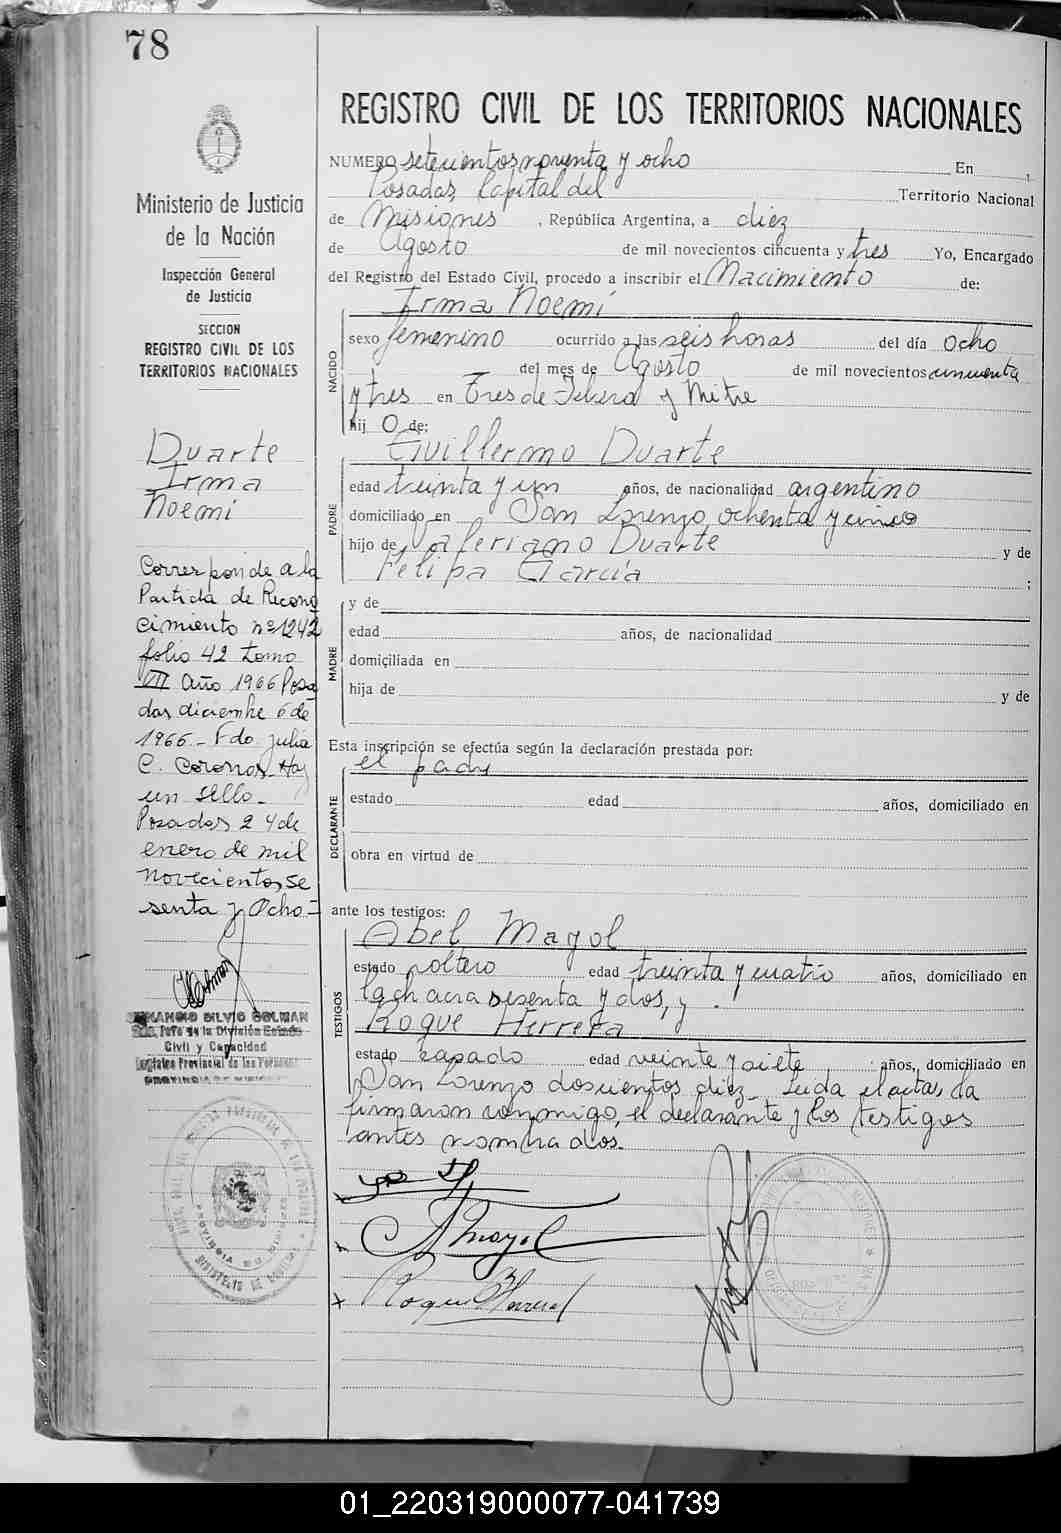 78
REGISTRO CIVIL DE LOS TERRITORIOS NACIONALES
NUMERO setecientos noventa y ocho En ,
Posadas, Capital del Territorio Nacional
de Misiones , República Argentina, a diez
de Agosto de mil novecientos cincuenta y tres Yo, Encargado
del Registro del Estado Civil, procedo a inscribir el Nacimiento de:
Irma Noemí
NACIDO
sexo femenino ocurrido a las seis horas del día ocho
del mes de Agosto de mil novecientos cincuenta
y tres en Tres de Febrero y Mitre
hij O de:
Guillermo Duarte
PADRE
edad treinta y un años, de nacionalidad argentino
domiciliado en San Lorenzo, ochenta y cinco
hijo de Valeriano Duarte y de
Felipa García ;
MADRE
y de
edad años, de nacionalidad
domiciliada en
hija de y de
Esta inscripción se efectúa según la declaración prestada por:
el padre
DECLARANTE
estado edad años, domiciliado en
obra en virtud de
ante los testigos:
Abel Mayol
TESTIGOS
estado soltero edad treinta y cuatro años, domiciliado en
Lachacra sesenta y dos, y
Roque Herrera
estado casado edad veinte y siete años, domiciliado en
San Lorenzo doscientos diez. Leida el acta, la
firmaron conmigo, el declarante y los testigos
antes nombrados.
Mayol
Roque Herrera
Ministerio de Justicia
de la Nación
Inspección General
de Justicia
SECCION
REGISTRO CIVIL DE LOS
TERRITORIOS NACIONALES
Duarte
Irma
Noemí
Corresponde a la
Partida de Recono
cimiento nº 1242
folio 42 tomo
VII Año 1966 Posa
das, diciembre 6 de
1966 - Fdo. Julia
C. Coronas. Hay
un sello -
Posadas 24 de
enero de mil
novecientos se
senta y Ocho -
SILVIO GOLMAN
Sub Jefe de la División Estado
Civil y Capacidad
Registro Provincial de las Personas
PROVINCIA DE MISIONES
01_220319000077-041739